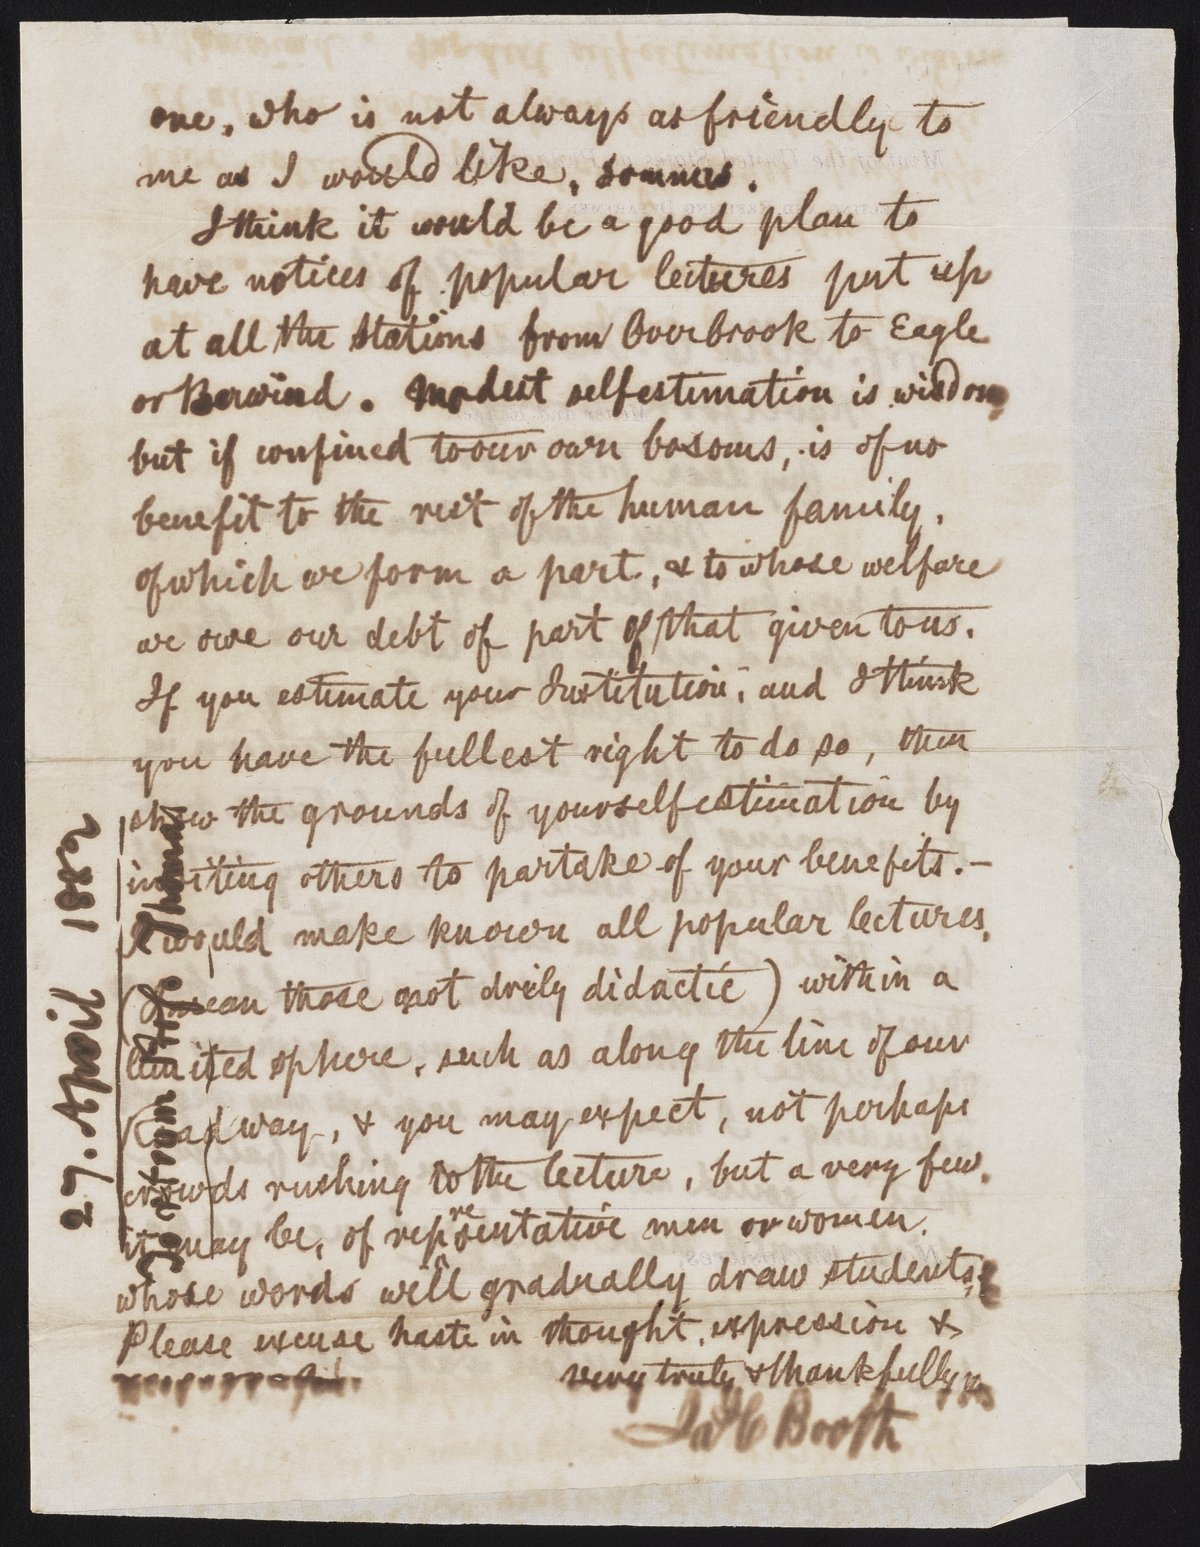 one, who is not always as friendly to
me as I would like, somnus.
I think it would be a good plan to
have notices of popular lectures put up
at all the stations from Overbrook to Eagle
or Berwind. Modest selfestimation is wisdom,
but if confined to our own bosoms, is of no
benefit to the rest of the human family,
of which we form a part, & to whose welfare
we owe our debt of part of that given to us.
If you estimate your Institution, and I think
you have the fullest right to do so, then
show the grounds of yourselfestimation by
inviting others to partake of your benefits.—
I would make known all popular lectures,
(I mean those not drily didactic) within a
limited sphere, such as along the line of our
Roadway, & you may expect, not perhaps
crowds rushing to the lecture, but a very few,
it may be, of representative men or women,
whose words will gradually draw students.
Please excuse haste in thought, expression &
very truly & thankfully yrs
Jas C Booth
27. April 1882
To
from
Thomas